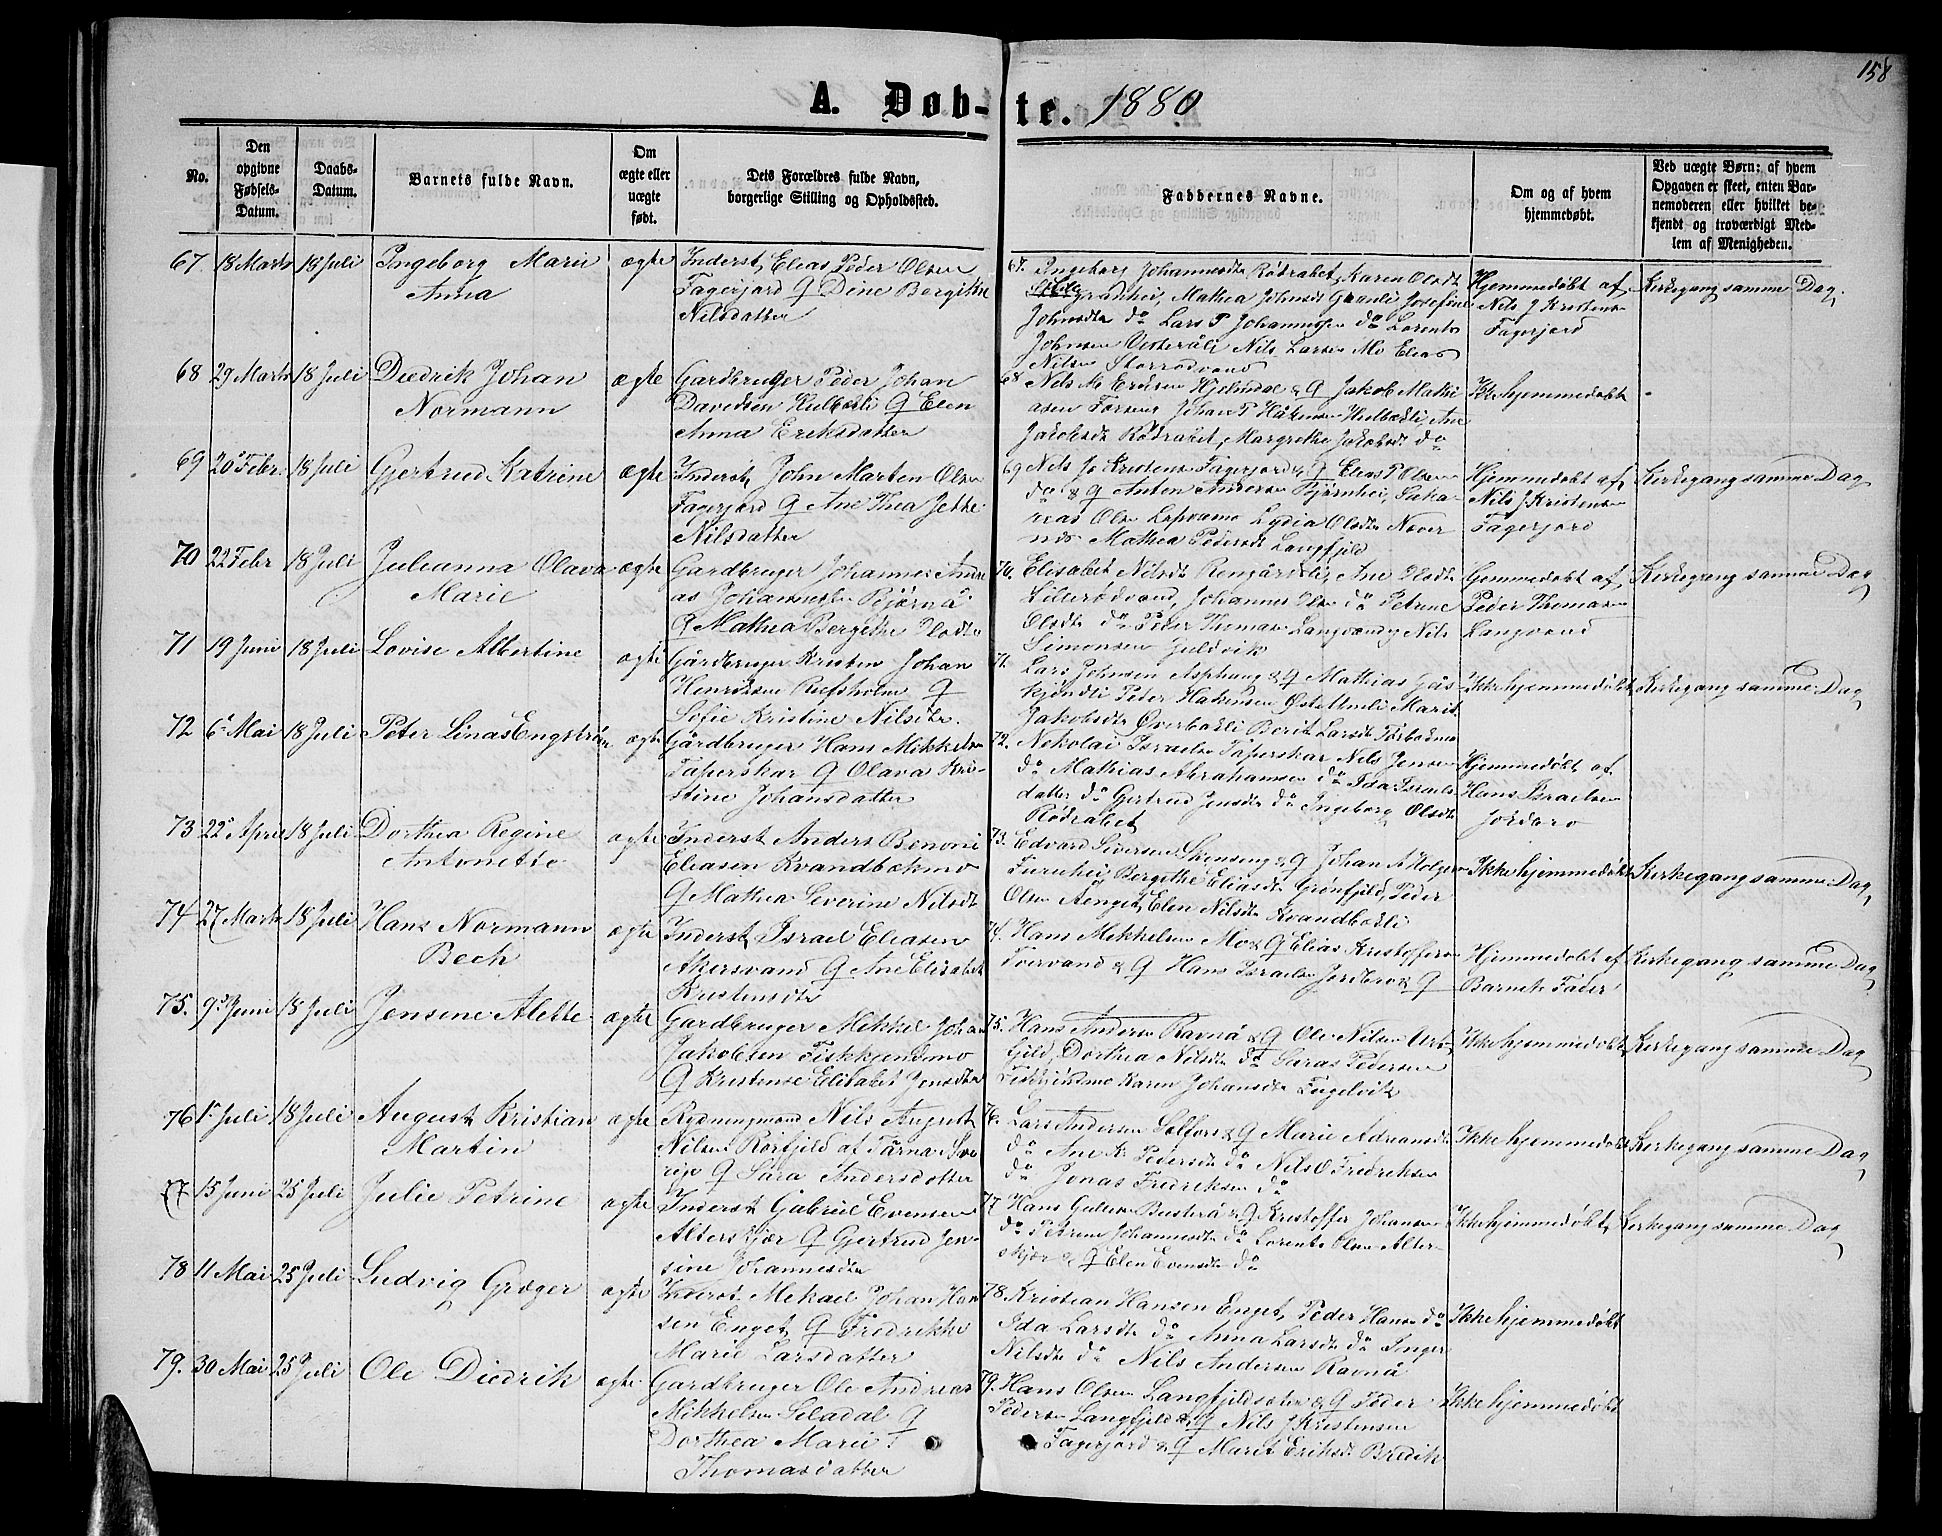 158
A. Døb-te. 1880
No.
Den opgivne Fødsels-Datum.
Daabs-Datum.
Barnets fulde Navn.
Om ægte eller uægte født.
Dets Forældres fulde Navn, borgerlige Stilling og Opholdssted.
Faddernes Navne.
Om og af hvem hjemmedøbt.
Ved uægte Børn: af hvem Opgaven er skeet, enten Barnemoderen eller hvilket bekjendt og troværdigt Medlem af Menigheden.
67. 18 Marts 18 Juli Ingeborg Marie ægte Inderst, Elias Peder Olsen
Anna Fagerjord & Dine Bergitte
Nilsdatter
67. Ingeborg Johannesdtr Rødrabet, Karen Olsdtr
Granhei, Mathea Johnsdt Granli Josefine
Johnsdtr do Lars P Johannessen do Lorents
Johnsen Nils Larsen Mo Elias
Nilsen Storrødvand
Hjemmedøbt af
Nils J Kristensen
Fagerjord
Kirkegang samme Dag.
68 29 Marts 18 Juli Diedrik Johan ægte Gardbruger Peder Johan
Normann Davidsen Kulbækli & Elen
Anna Eriksdatter
68 Nils Mo Eriksen Hjelmdal & & Jakob Mathi
asen Forseng Johan P Håkensen Kulbækli, Ane
Jakobsdt Rødrabet, Margrethe Jakobsdt do
Ikke hjemmedøbt
69 20 Febr. 18 Juli Gjertrud Katrine ægte Inderst, John Marten Olsen
Fagerjord & Ane Thea Jette
Nilsdatter
69 Nils Jo Kristensen Fagerjord & & Elias P Olsen
do & & Anton Andersen Bjørnhei, Saka
rias Olsen Lydia Olsdtr Never
nes Mathea Pedersdt Langfjeld
Hjemmedøbt af
Nils J Kristensen
Fagerjord
Kirkegang samme Dag
70 22 Febr 18 Juli Julianna Olava ægte Gardbruger Johannes Andre
Marie as Johannessen Bjørnå
& Mathea Bergitte Olsdtr
70. Elisabet Nilsdt Ane Olsdtr
Lillerødvand, Johannes Olsen do Petrine
Olsdtr do Peder Thomasen Langvand, Nils
Simonsen Guldvik
Hjemmedøbt af
Peder Thomasen
Langvand
Kirkegang samme Dag
71 19 Juni 18 Juli Lovise Albertine ægte Gårdbruger Kristen Johan
Henriksen Rufsholm &
Sofie Kristine Nilsdtr.
71. Lars Johnsen Asphaug & & Mathias Gås
kjøndli Peder Hakensen Marit
Jakobsdtr Øverbækli Berit Larsdtr
Ikke hjemmedøbt Kirkegang samme Dag
72 6 Mai 18 Juli Peter Linas Engstrøm ægte Gårdbruger Hans Mikkelsen
Tapperskar & Olava Kri-
stine Johansdatter
72. Nekolai Israelsen Tapperskar Nils Jensen
do Mathias Abrahamsen do Ida Israels
datter do Gertrud Jensdtr do Ingeborg Olsdtr
Rødrabet
Hjemmedøbt af
Hans Israelsen
Jordbro
73 22 April 18 Juli Dorthea Regine ægte Inderst Anders Benoni
Antonette Eliasen Kvandbækmo
& Mathea Severine Nilsdt
73. Edvard Siversen Skonseng & & Johan A Holgersen
Furuhei, Bergithe Eliasdt Grønfjeld, Peder
Olsen Aenget, Elen Nilsdtr Kvandbækli
Ikke hjemmedøbt Kirkegang samme Dag
74 27 Marts 18 Juli Hans Normann ægte Inderst, Israel Eliasen
Bech Akersvand & Ane Elisabet
Kristensdtr
74. Hans Mikkelsen Mo & & Elias Kristoffersen
Tvervand & & Hans Israelsen Jordbro & &
Hjemmedøbt af
Barnets Fader
Kirkegang samme Dag
75. 9 Juni 18 Juli Jensine Alette ægte Gardbruger Mikkel Johan
Jakobsen Fiskkjøndmo
& Kristense Elisabet Jensdtr
75. Hans Andersen Ravnå & & Ole Nilsen Urt
fjeld, Dorthea Nilsdtr do Saras Pedersen
Fiskkjøndmo Karen Johansdtr Fugelvik
Ikke hjemmedøbt Kirkegang samme Dag
76 1 Juli 18 Juli August Kristian ægte Rydningmand Nils August
Martin Nilsen Rørfjeld af Tärna Sve
rige & Sara Andersdatter
76. Lars Andersen Selfors & & Marie Adriansdt
do Ane K Pedersdt do Nils O Fredriksen
do Jonas Fredriksen do
Ikke hjemmedøbt Kirkegang samme Dag
77 15 Juni 25 Juli Julie Petrine ægte Inderst Gabriel Evensen
Alterskjær & Gjertrud Jen-
sine Johannesdtr
77 Hans Gulesen Busterå & & Kristoffer Johansen
do Petrine Johannesdtr do Lorents Olsen Alter-
skjær & & Elen Evensdtr do
Ikke hjemmedøbt Kirkegang samme Dag
78 11 Mai 25 Juli Ludvig Grøger ægte Inderst Mekael Johan Han
sen Enget & Fredrikke
Marie Larsdatter
78. Kristian Hansen Enget, Peder Hansen do
Ida Larsdtr do Anna Larsdtr do Inger
Nilsdtr do Nils Andersen Ravnå
Ikke hjemmedøbt
79. 30 Mai 25 Juli Ole Diedrik ægte Gardbruger Ole Andreas
Mikkelsen Seladal &
Dorthea Marie
Thomasdatter
79. Hans Olsen Langfjeldsæter & & Peder
Pedersen Langfjeld & & Nils J Kristensen
Fagerjord & & Marit Eriksdt Bredik
Ikke hjemmedøbt